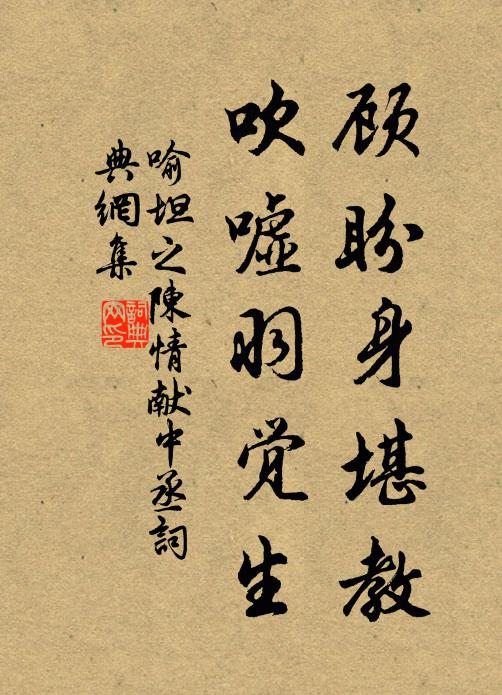 顾盼身堪教
吹嘘羽觉生
喻坦之陳情献中丞詞
典網集
詞典网印